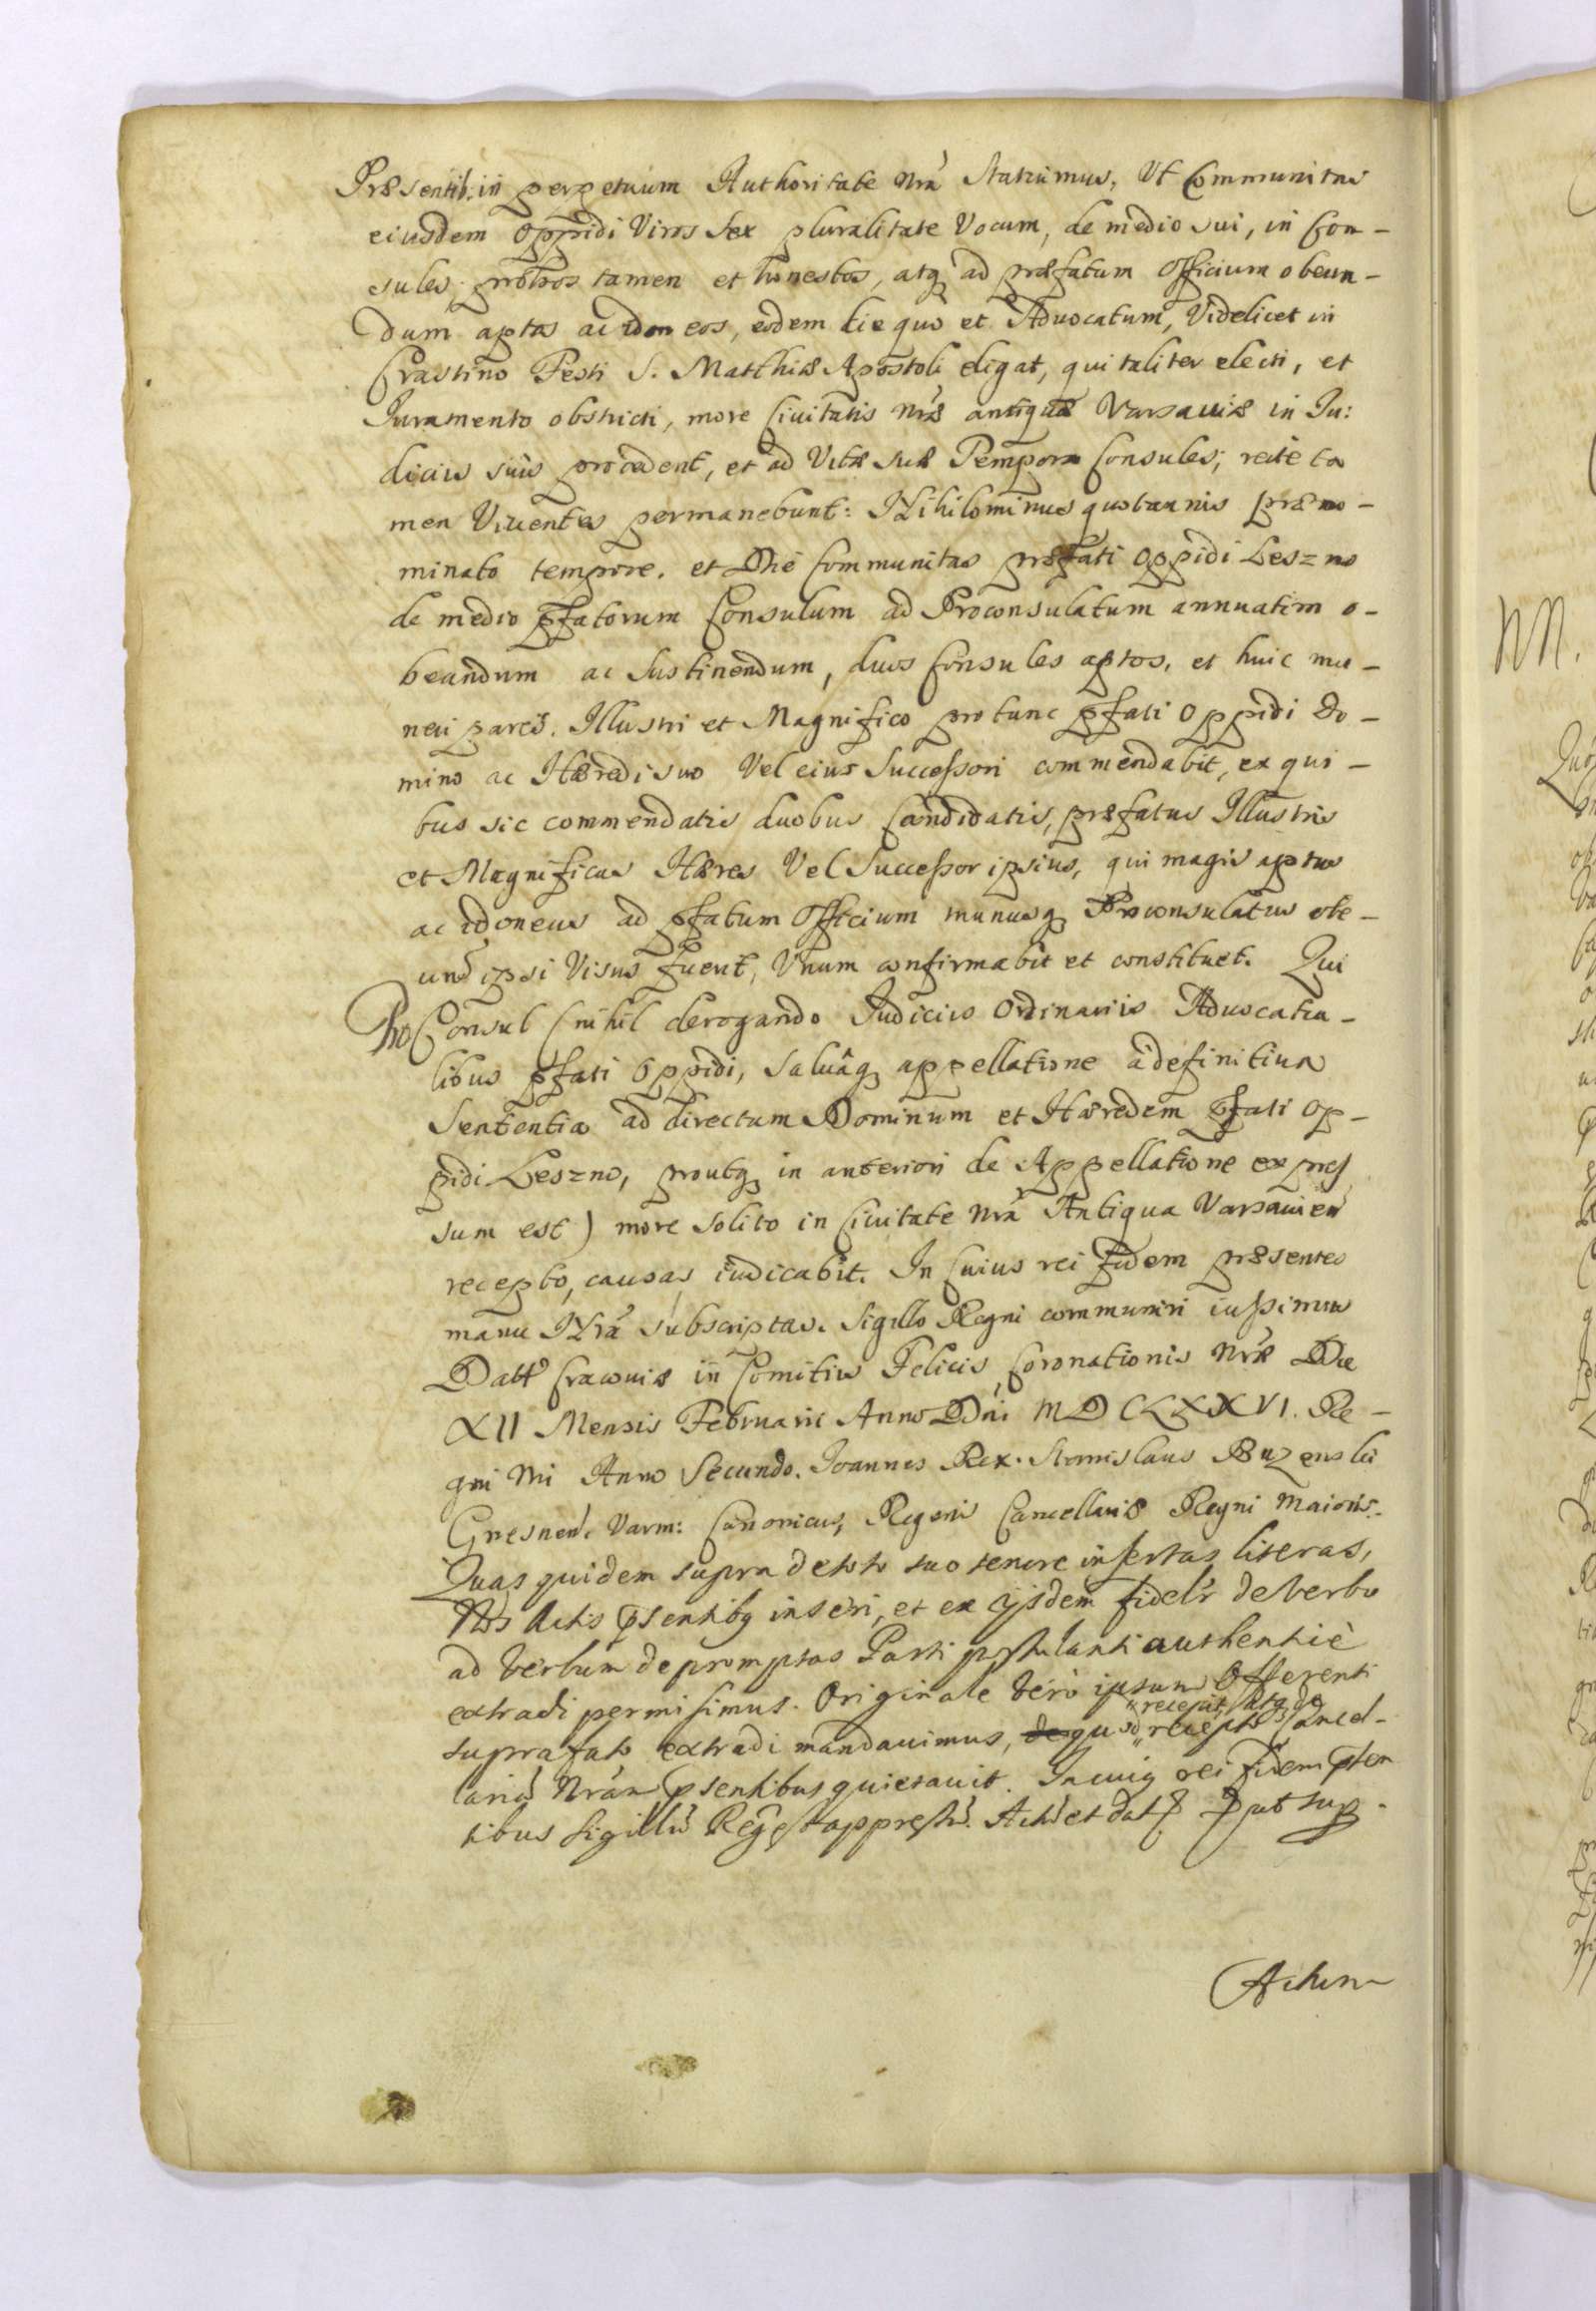 Præsentib: in perpetuum Authoritate nrã Statuimus, Ut Communitas
eiusdem Oppidi Viros Sex pluralitate Vocum, de medio sui, in Con-
sules, probos tamen et honestos, atq ad præfatum Officium obeun-
dum aptos ac idoneos, eodem die quo et Advocatum, Videlicet in
Crastino Festi S. Matthiæ Apostoli eligat, qui taliter electi, et
Juramento obstricti, more Civitatis nræ antiquæ Varsaviæ in Ju:
diciis suis procedent, et ad Vitæ suæ Tempora Consules, recte ta
men Viventes permanebunt: Nihilominus quotannis præno-
minato tempore, et Die Communitas præfati Oppidi Leszno
de medio pfatorum Consulum ad Proconsulatum annuatim o-
beandum ac Sustinendum, duos Consules aptos, et huic mu-
neri pares, Illustri et Magnifico pro tunc pfati Oppidi Do-
mino ac Hæredi suo Vel eius Successori commendabit, ex qui-
bus sic commendatis duobus Candidatis, præfatus Illustris
et Magnificus Hæres Vel Successor ipsius, qui magis aptus
ac idoneus ad pfatum Officium munusq Proconsulatus obe-
und ipsi Visus fuerit, Unum confirmabit et constituet. Qui
Pro Consul (nihil derogando Judiciis Ordinariis Advocatia-
libus pfati Oppidi, Salvâq appellatione à definitiva
Sententia ad directum Dominum et Hæredem pfati Op-
pidi Leszno, proutq in anteriori de Appellatione expres
sum est) more solito in Civitate nrã Antiqua Varsavien
recepto, causas iudicabit. In Cuius rei fidem præsentes
manu Nrã subscriptas. Sigillo Regni communiri iussimus
Datt Cracoviæ in Comitiis Felicis Coronationis Nræ Die
XII Mensis Februarii Anno Dni MDCLXXVI. Re-
gni Nri Anno Secundo. Joannes Rex. Stanislaus Buzenski
Gnesnen, Varm: Canonicus, Regens Cancellariæ Regni Maioris.
Quas quidem supra de toto suo tenore insertas literas,
Nos Actis psentibq inseri, et ex ijsdem fidelr de verbo
ad verbum depromptas Parti postulanti authentice
extradi permisimus. Originale vero ipsum Offerenti
suprafato extradi mandavimus, de quo recepto Cancel-
recepit, atq de
lariã Nrãm psentibus quietavit. In cuiq rei fidem psen
tibus Sigillũ Regẽ est appressũ. Actũ et dat put sup.
Actum